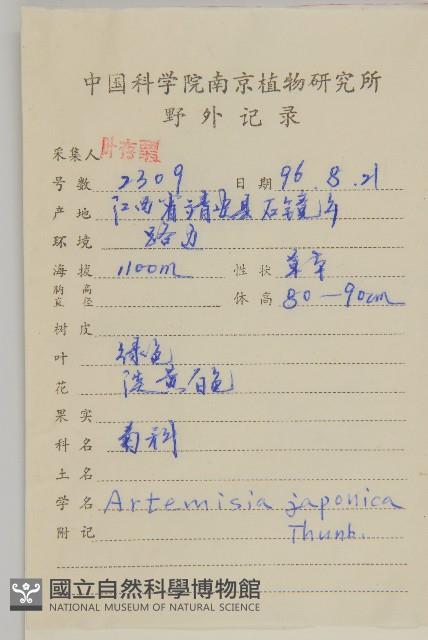 中国科学院南京植物研究所
野外记录
采集人 叶存粟
号数 2309 日期 96.8.21
产地 江西省靖安县石镜
环境 路边
海拔 1100m 性状 草本
胸高直径 体高 80-90cm
树皮
叶 绿色
花 淡黄白色
果实
科名 菊科
土名
学名 Artemisia japonica
附记 Thunb.
國立自然科學博物館
NATIONAL MUSEUM OF NATURAL SCIENCE